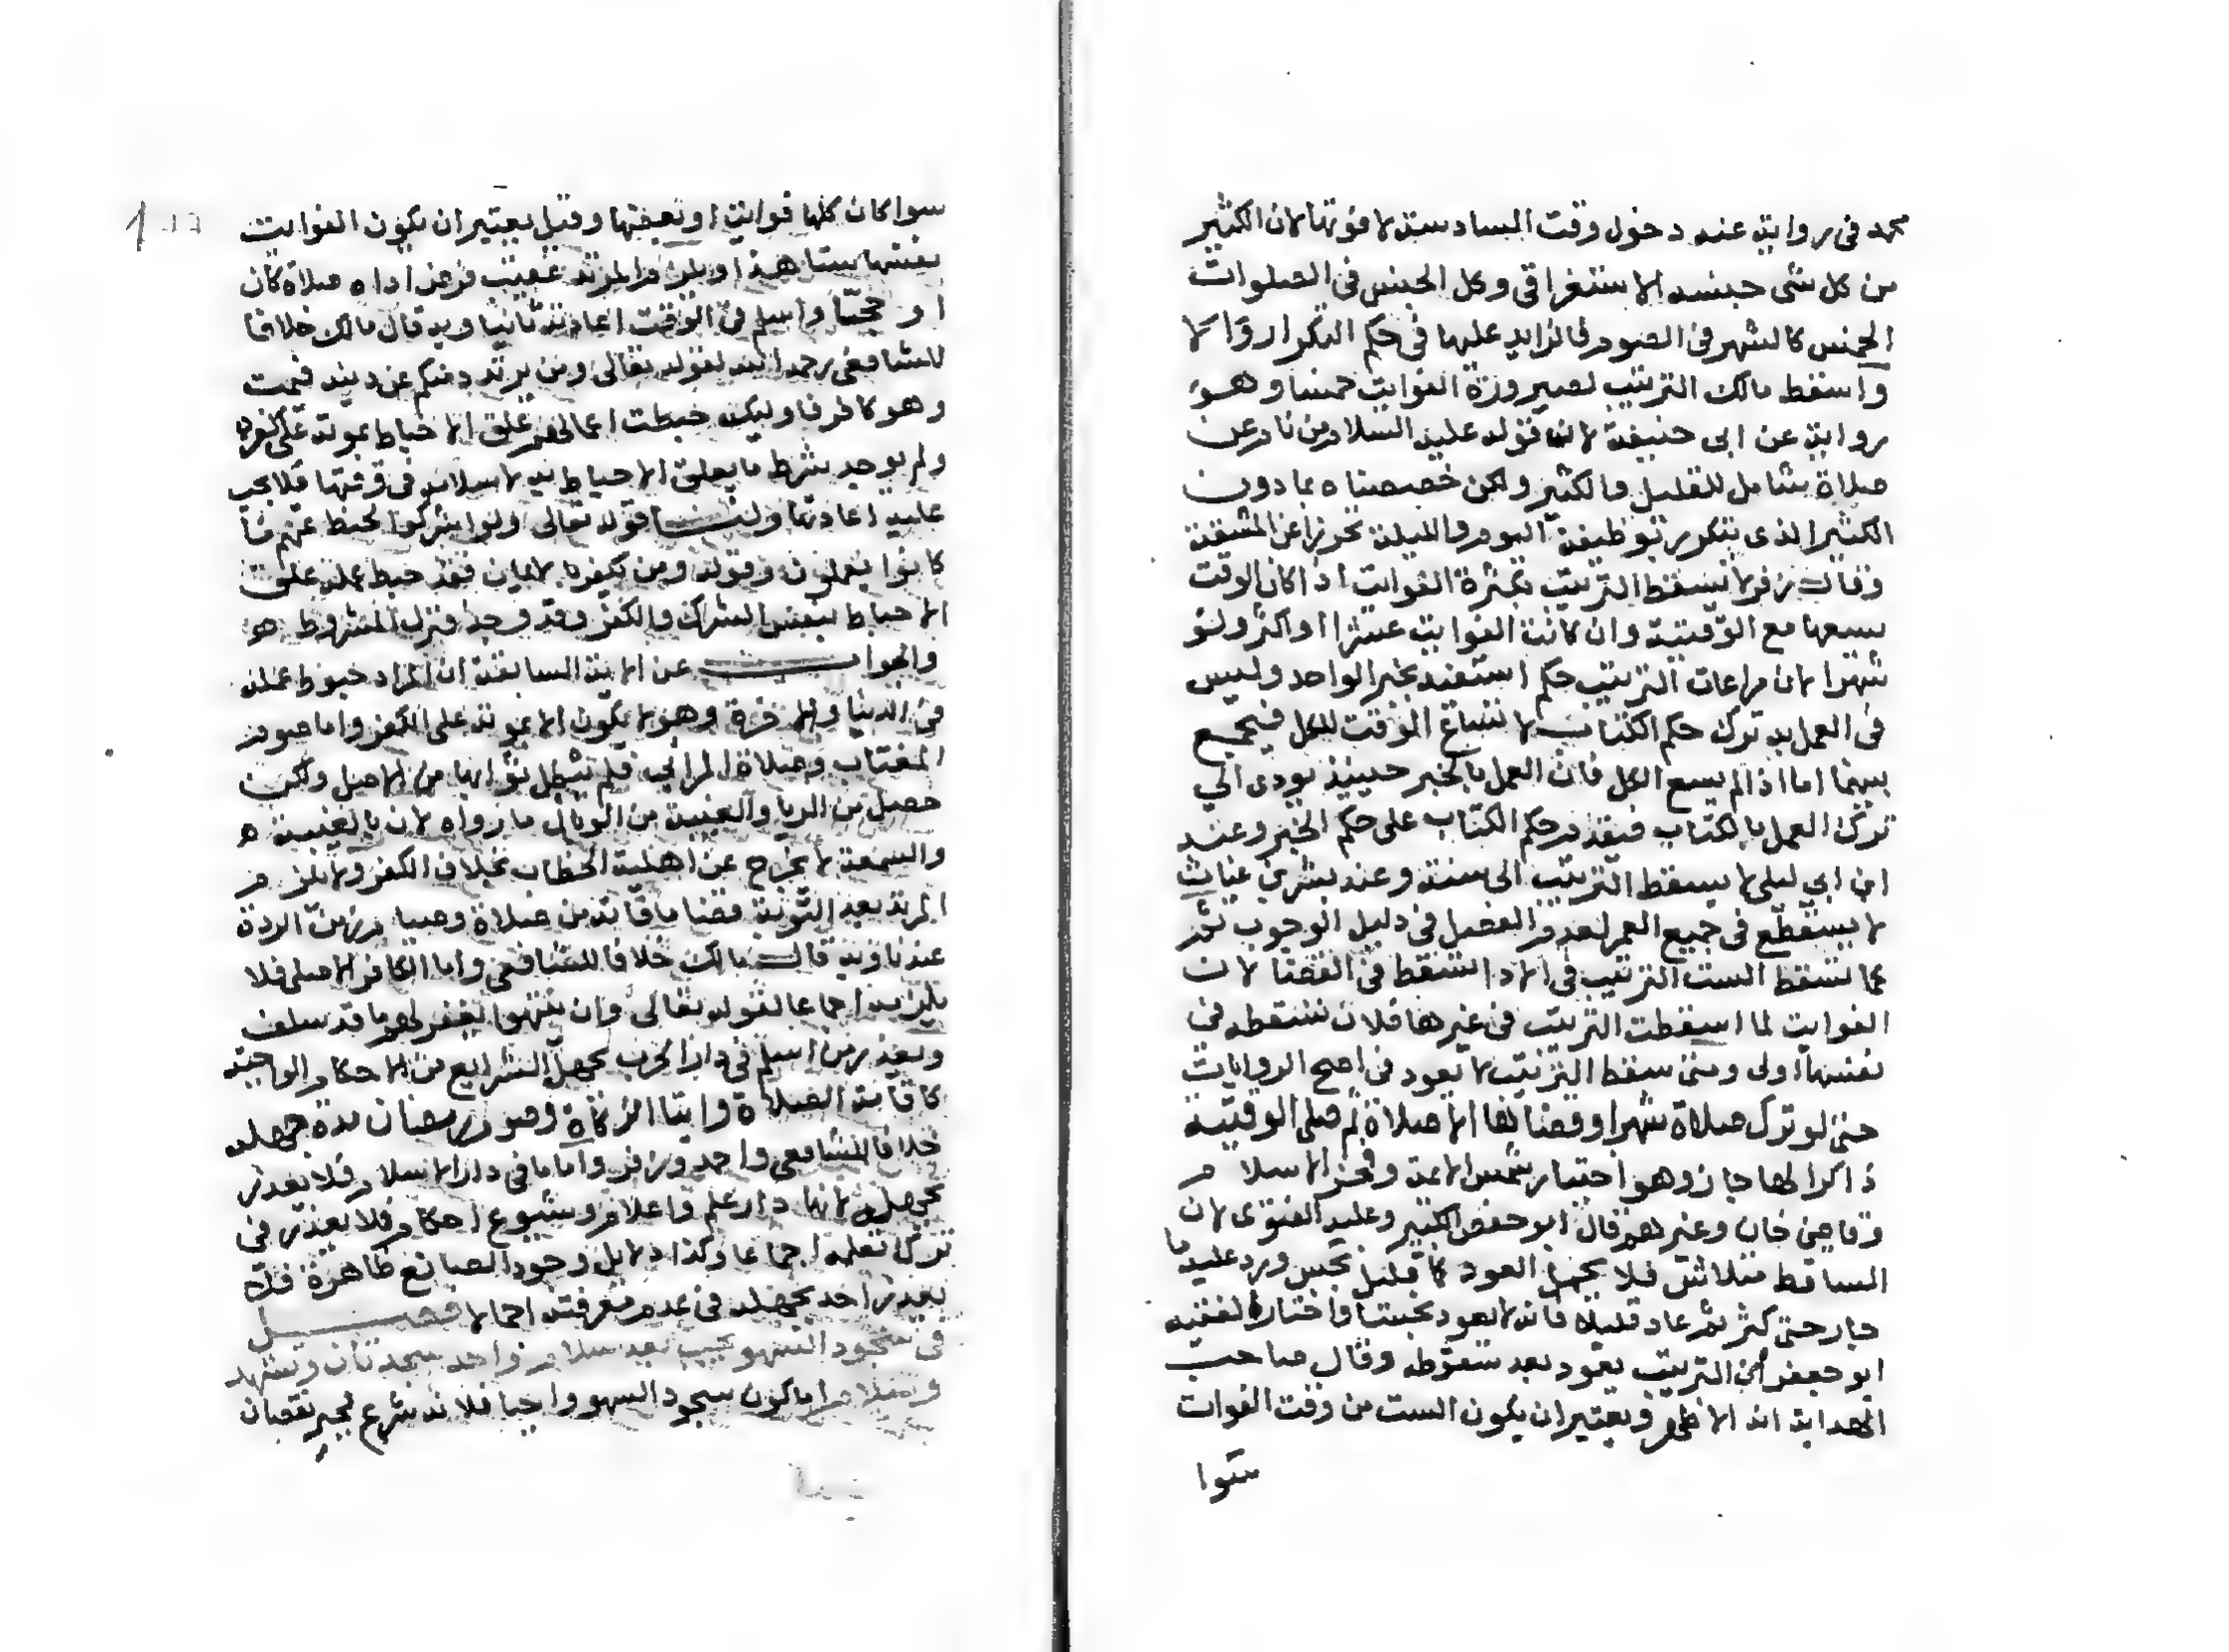 محمد في رواية عند دخول وقت السادسة لا فوتها لان الكثير
من كل شى جنسه الاستغراقي وكل الجنس في الصلوات
الخمس كالشهر في الصوم فالزايد عليها في حكم التكرار ولا
واسقط مالك الترتيب لصيرورة الفوايت خمسا وهو
رواية عن ابى حنيفة لان قوله عليه السلام من نام عن
صلاة شامل للقليل والكثير ولكن خصصناه بمادون
الكثير الذى يتكرر بوظيفة اليوم والليلة تحرزا عن المشقة
وقال زفر لا يسقط الترتيب بكثرة الفوايت اذا كان الوقت
يسعها مع الوقتية وان كانت الفوايت عشرا او اكثر ولو
شهرا لان مراعات الترتيب حكم استفيد بخبر الواحد وليس
في العمل به ترك حكم الكتاب لاتساع الوقت للكل فيجمع
بينهما اما اذا لم يسع الكل فان العمل بالخبر حينيذ يودى الي
ترك العمل بالكتاب فيقدم حكم الكتاب على حكم الخبر وعند
ابن ابي ليلى لا يسقط الترتيب الى سنة وعند بشر بن غياث
لا يسقط في جميع العمر لعدم الفصل في دليل الوجوب ثم
كما تسقط الست الترتيب في الادا تسقط في القضا لان
الفوايت لما اسقطت الترتيب في غيرها فلان تسقطه في
نفسها اولى ومتى سقط الترتيب لا يعود في اصح الروايات
حتى لو ترك صلاة شهر او قضاها الا صلاة ثم صلى الوقتية
ذاكرا لها جاز وهو اختيار شمس الايمة وفخر الاسلام
وقاضي خان وغيرهم قال ابو حفص الكبير وعليه الفتوى لان
الساقط متلاش فلا يحتمل العود كما قليل نجس ورد عليه ما
جار حتى كثر ثم عاد قليلا فانه لا يعود نجسا واختار الفقيه
ابو جعفر ان الترتيب يعود بعد سقوطه وقال صاحب
الهداية انه الاظهر ويعتبر ان يكون الست من وقت الفوات
سوا
سوا كان كلها فوايت او بعضها وقيل يعتبر ان يكون الفوايت
بنفسها ستا هذا ويلزم المرتد عقيب فرض اداه صلاة كان
او حجا واسلم في الوقت اعادته ثانيا وبه قال مالك خلافا
للشافعي رحمه الله لقوله تعالى ومن يرتدد منكم عن دينه فيمت
وهو كافر فاوليك حبطت اعمالهم علق الاحباط بموته على كفره
ولم يوجد شرط ما يعلق الاحباط به لاسلامه في وقتها فلا يجب
عليه اعادتها ولنا قوله تعالى ولو اشركوا لحبط عنهم ما
كانوا يعملون وقوله ومن يكفر بالايمان فقد حبط عمله علق
الاحباط بنفس الشرك والكفر وقد وجد فنزل المشروط هو
والجواب عن الاية السابقة ان المراد حبوط عمله
في الدنيا والاخرة وهو لا يكون الا بموته على الكفر واما صوم
المغتاب وصلاة المرائي فلم يبطل ثوابها من الاصل ولكن
حصل من الريا والغيبة من الوبال ما زواه لان بالغيبة ه
والسمعة لا يخرج عن اهلية الخطاب بخلاف الكفر ولا يلزم
المرتد بعد التوبة قضا ما فاته من صلاة وصيام زمن الردة
عندنا وبه قال مالك خلافا للشافعي واما الكافر الاصلى فلا
يلزمه اجماعا لقوله تعالى وان ينتهوا يغفر لهم ما قد سلف
ويعذر من اسلم في دار الحرب بجهل الشرايع من الاحكام الواجبة
كاقامة الصلاة وايتا الزكاة وصوم رمضان مدة جهله
خلافا للشافعى واحمد وزفر واما ما في دار الاسلام فلا يعذر
بجهله لانها دار علم واعلام وشيوع احكام فلا يعذر في
ترك تعلمه اجماعا وكذا دلايل وجود الصانع ظاهرة فلا
يعذر احد بجهله في عدم معرفته اجمالا فصل
في سجود السهو يجب بعد سلام واحد سجدتان وتشهد
وسلام اما كون سجود السهو واجبا فلانه شرع لجبر نقصان